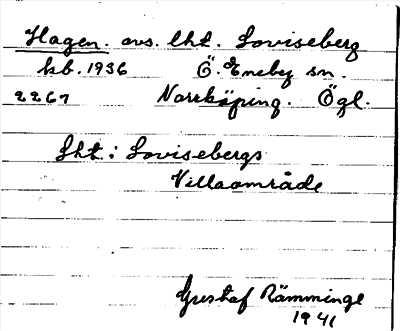 Hagen. avs. lht. Loviseberg
kb. 1936 Ö. Eneby sn.
2267 Norrköping. Ögl.
Lht: Lovisebergs
Villaområde
Gustaf Rämminge
1941